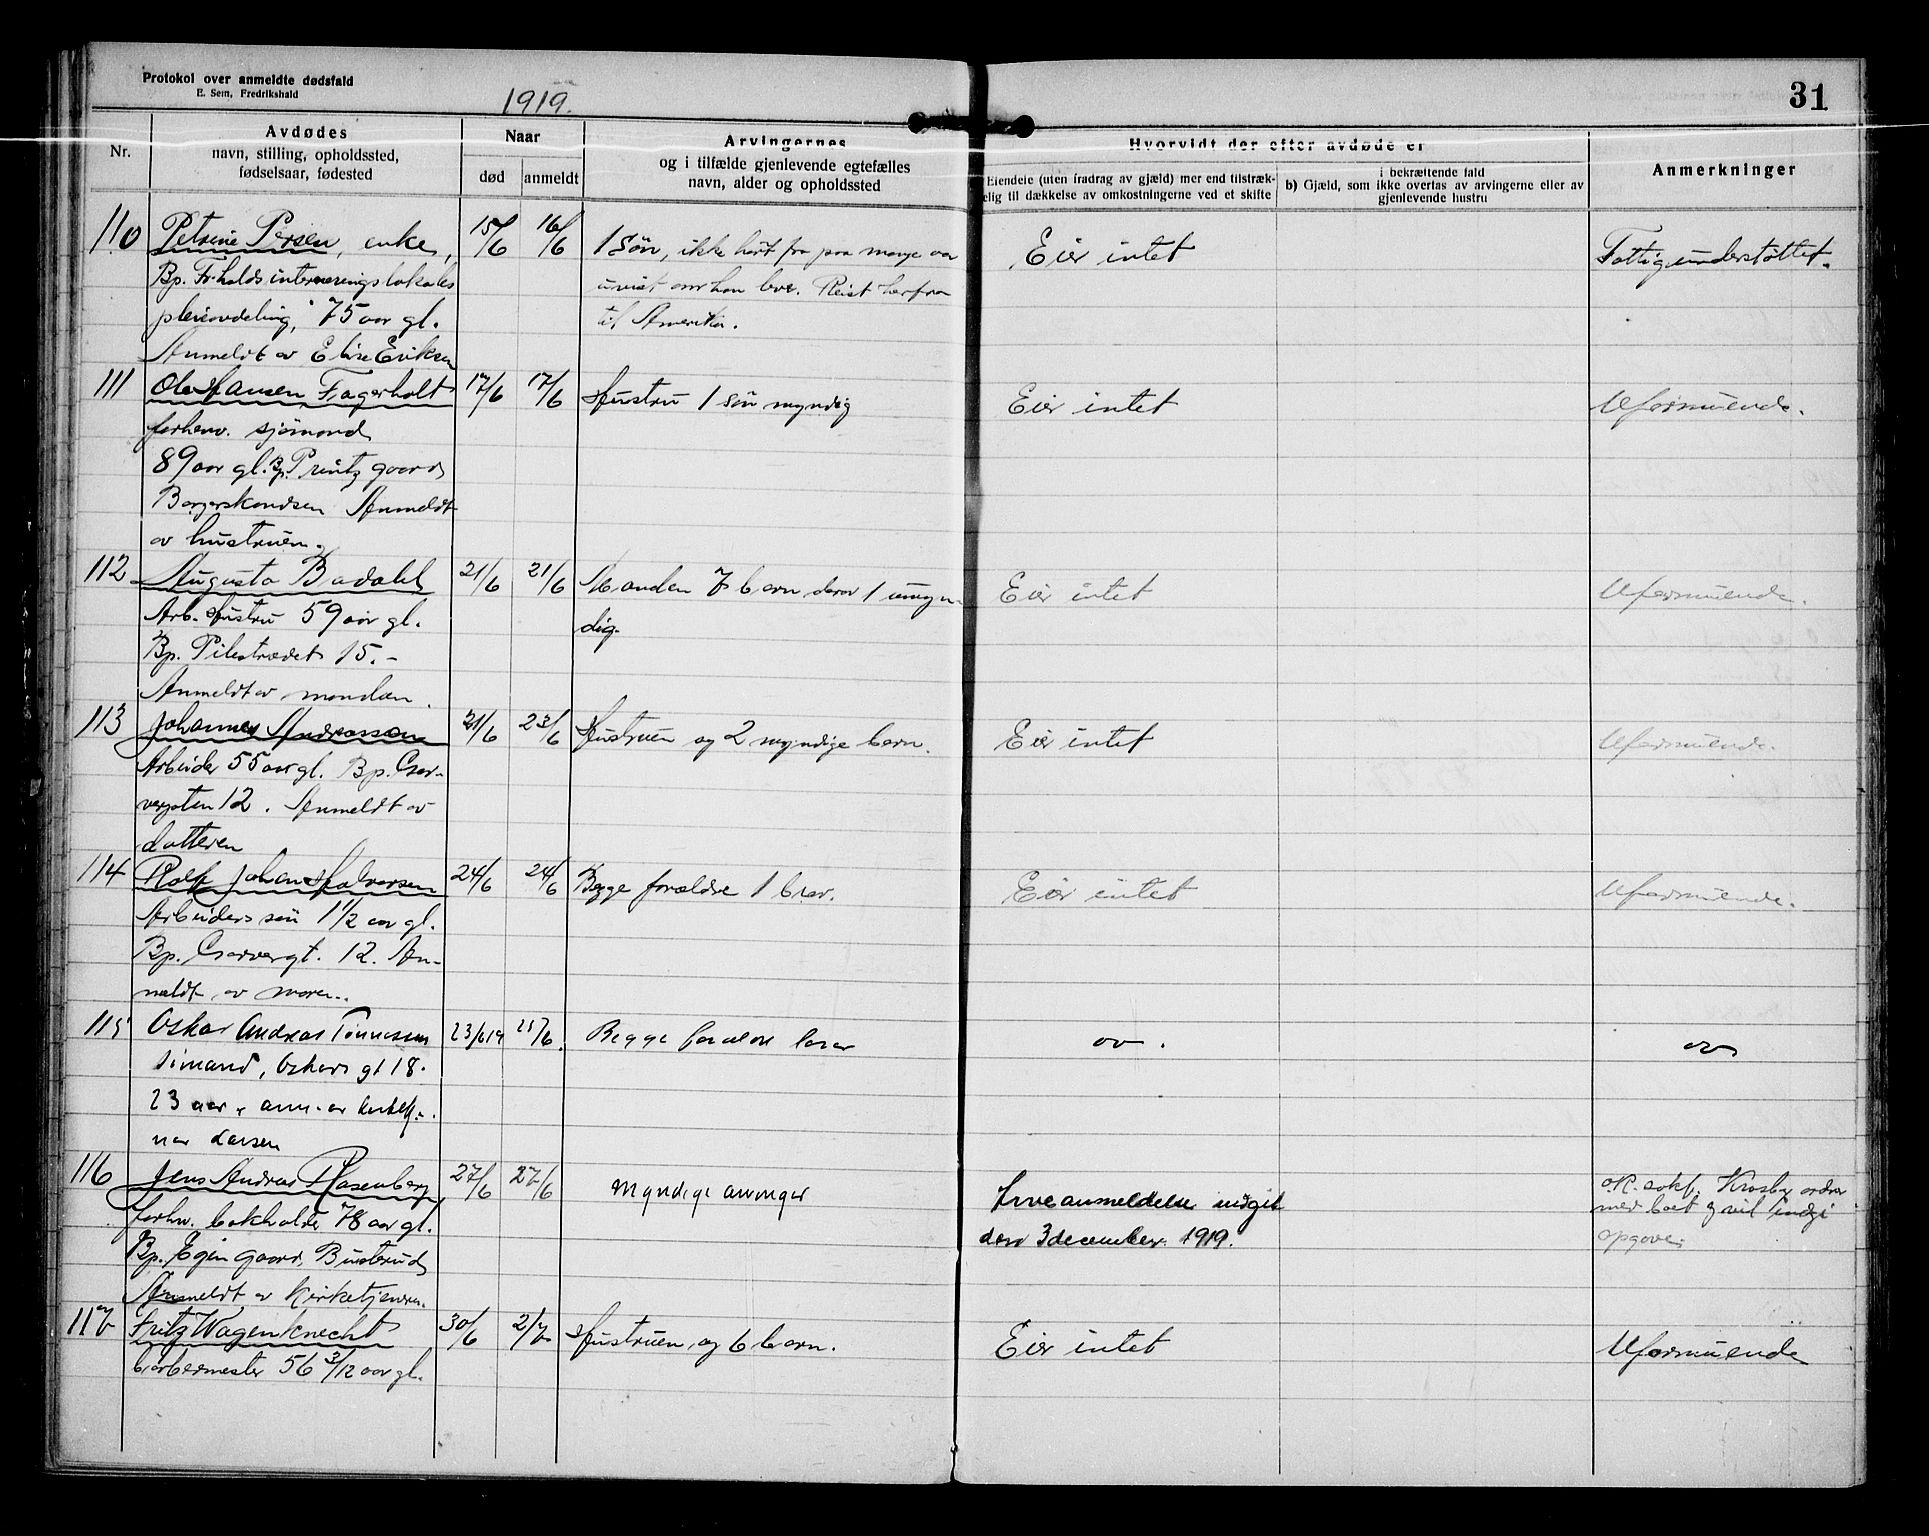 Protokol over anmeldte dødsfald
E. Sem, Fredrikshald
1919.
31
Nr.
Avdødes
navn, stilling, opholdssted,
fødselsaar, fødested
Naar
død
anmeldt
Arvingernes
og i tilfælde gjenlevende egtefælles
navn, alder og opholdssted
Hvorvidt der efter avdøde er
Eiendele (uten fradrag av gjæld) mer end tilstræk-
elig til dækkelse av omkostningerne ved et skifte
i bekræftende fald
b) Gjæld, som ikke overtas av arvingerne eller av
gjenlevende hustru
Anmerkninger
110 Petrine Persen, enke, 15/6 16/6 1 søn, ikke hørt fra paa mange aar Eier intet Fattigunderstøttet.
Bp. Fr.halds interneringslokales uvist om han lever. Reist herfra
pleieavdeling, 75 aar gl. til Amerika.
Anmeldt av Elise Eriksen
111 Ole Hansen Fagerholt 17/6 17/6 Hustru 1 søn myndig Eier intet Uformuende.
forhenv. sjømand
89 aar gl. Bp. Printzgaard
Anmeldt
av hustruen.
112 Augusta Badahl 21/6 21/6 Manden 7 barn derav 1 umyn- Eier intet Uformuende.
Arb. Hustru 59 aar gl. dig.
Bp. Pilestrædet 15.-
Anmeldt av manden.
113 Johannes Andreassen 21/6 23/6 Hustruen og 2 myndige barn. Eier intet Uformuende.
Arbeider 55 aar gl. Bp. Osar-
vergaten 12. Anmeldt av
datteren
114 Rolf Johan Halvorsen 24/6 24/6 Begge forældre 1 bror. Eier intet Uformuende.
Arbeiders søn 1 1/2 aar gl.
Bp. Osarvergt. 12. An-
meldt av moren.
115 Oskar Andreas Tønnessen 23/6 19 25/6. Begge forældre lever
simand, Oskars gt 18.
23 aar, anm. av
Larsen
116 Jens Andreas Rosenberg 27/6 27/6 Myndige arvinger Arveanmeldelse indgit O.R. sakf. Krosby ordner
forhv. bokholder 78 aar gl. den 3 december 1919. med boet og vil indgi
Bp. Egen gaard, Busterud opgave.
Anmeldt av Kirketjeneren.
117 Fritz Wagenknecht 30/6 2/7 Hustruen og 6 barn. Eier intet Uformuende
barbermester 56 3/12 aar gl.